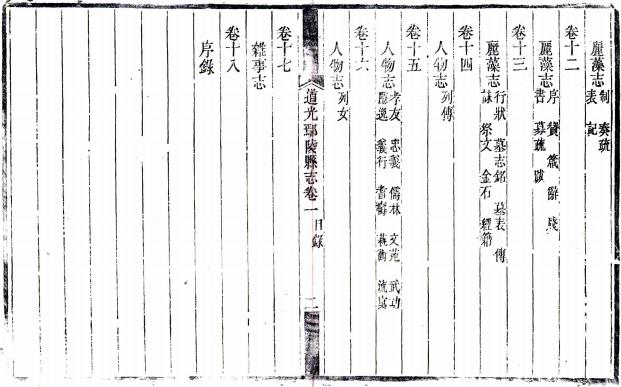 麗藻志 制 奏疏
表 記
卷十二
麗藻志 序 贊 箴 辭 牋
書 募疏 跋
卷十三
麗藻志 行狀 墓志銘 墓表 傳
誄 祭文 金石 經籍
卷十四
人物志 列傳
卷十五
人物志 孝友 忠義 儒林 文苑 武功
隱逸 義行 耆壽 藝術 流寓
卷十六
人物志 列女
道光鄢陵縣志卷一 目錄 二
卷十七
雜事志
卷十八
序錄